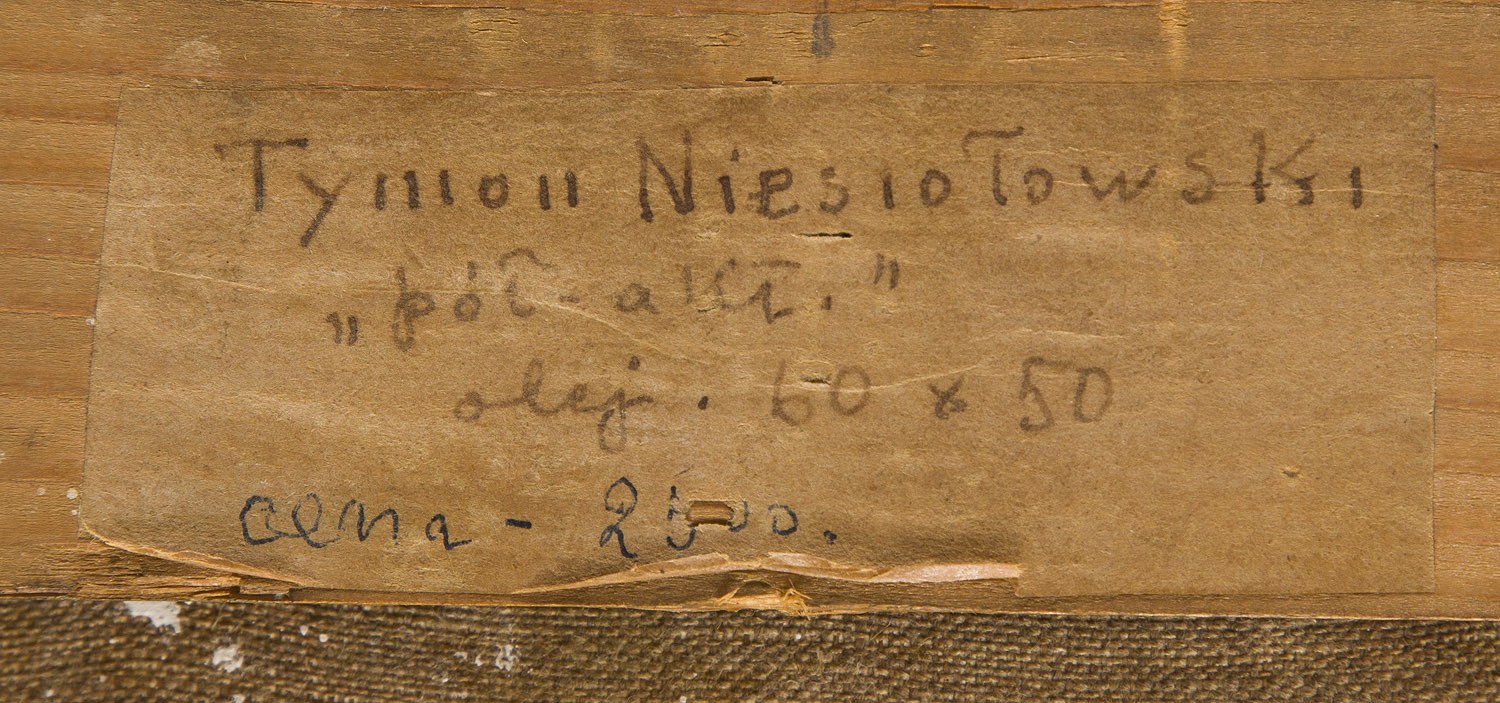 Tymon Niesiołowski
„pół-akt."
olej. 60 x 50
cena - 2500.